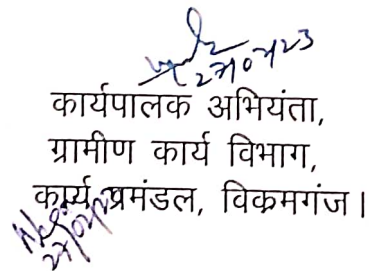 27/07/23
कार्यपालक अभियंता,
ग्रामीण कार्य विभाग,
कार्य प्रमंडल, विक्रमगंज।